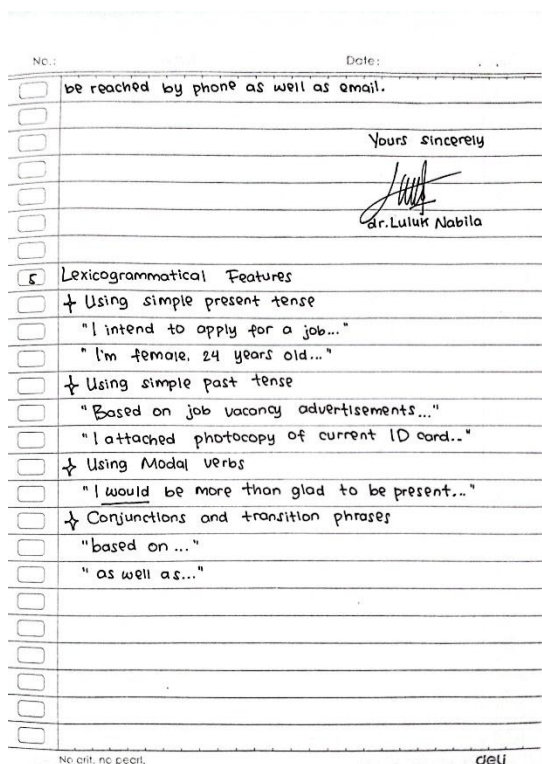 No.:
Date:
be reached by phone as well as email.
Yours sincerely
dr.Luluk Nabila
5 Lexicogrammatical Features
Using simple present tense
"I intend to apply for a job..."
"I'm female, 24 years old..."
Using simple past tense
"Based on job vacancy advertisements..."
"I attached photocopy of current ID card.."
Using Modal verbs
"I would be more than glad to be present..."
Conjunctions and transition phrases
"based on ..."
"as well as..."
No grit, no pearl.
deli